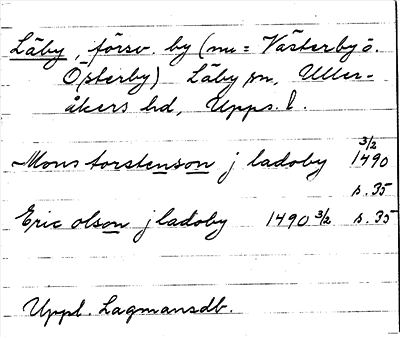 Läby, försv. by (nu = Västerby o.
Österby) Läby sn, Uller-
åkers hd, Upps. l.
Mons torstenson j ladoby 3/2 1490
s. 35
Eric olson j ladoby 1490 3/2 s. 35
Uppl. Lagmansdb.